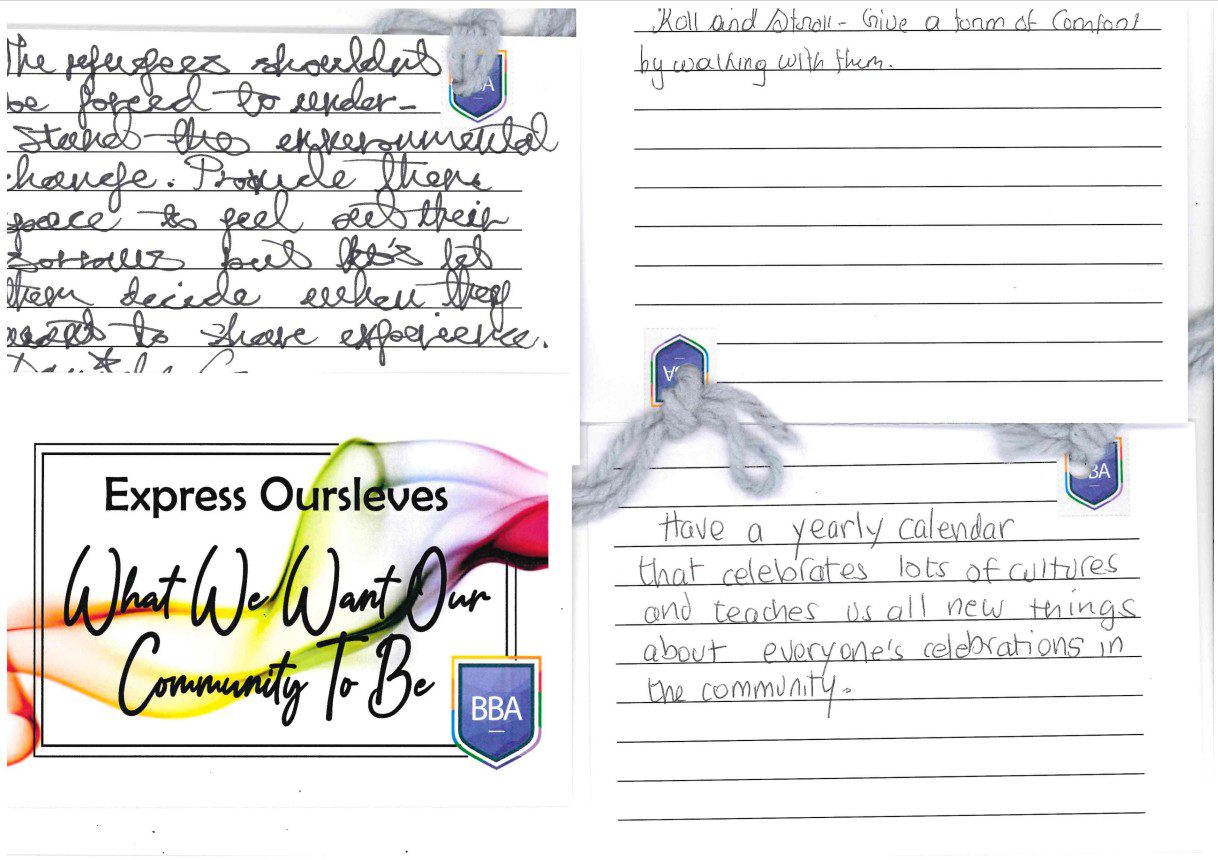 The refugees shouldn't
be forced to under-
stand the environmental
change. Provide them
space to feel out their
sorrows but let
them decide when they
want to share experience.
BA
Express Oursleves
What We Want Our
Community To Be
BBA
Roll and Stroll - Give a form of Comfort
by walking with them.
BA
BA
Have a yearly calendar
that celebrates lots of cultures
and teaches us all new things
about everyone's celebrations in
the community.